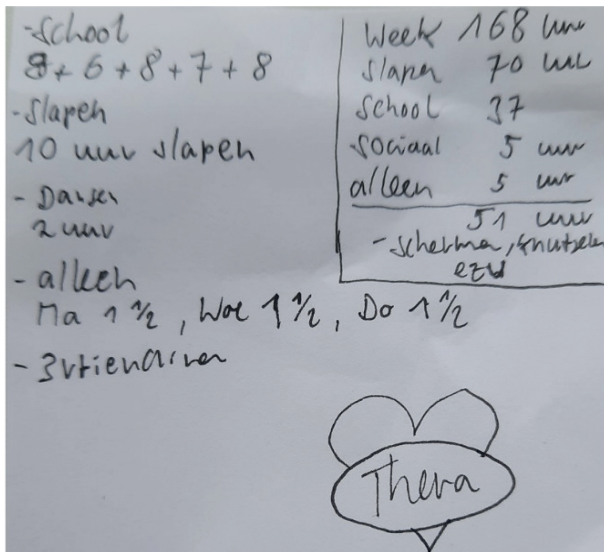 -School
8+ 6 + 8 + 7 + 8
-Slapen
10 uur slapen
- Dansen
2 uur
- alleen
Ma 1 1/2, Woe 1 1/2, Do 1 1/2
- 3
Week 168 uur
Slapen 70 uur
School 37
Sociaal 5 uur
alleen 5 uur
51 uur
- schermen, knutselen
ezv
Thera